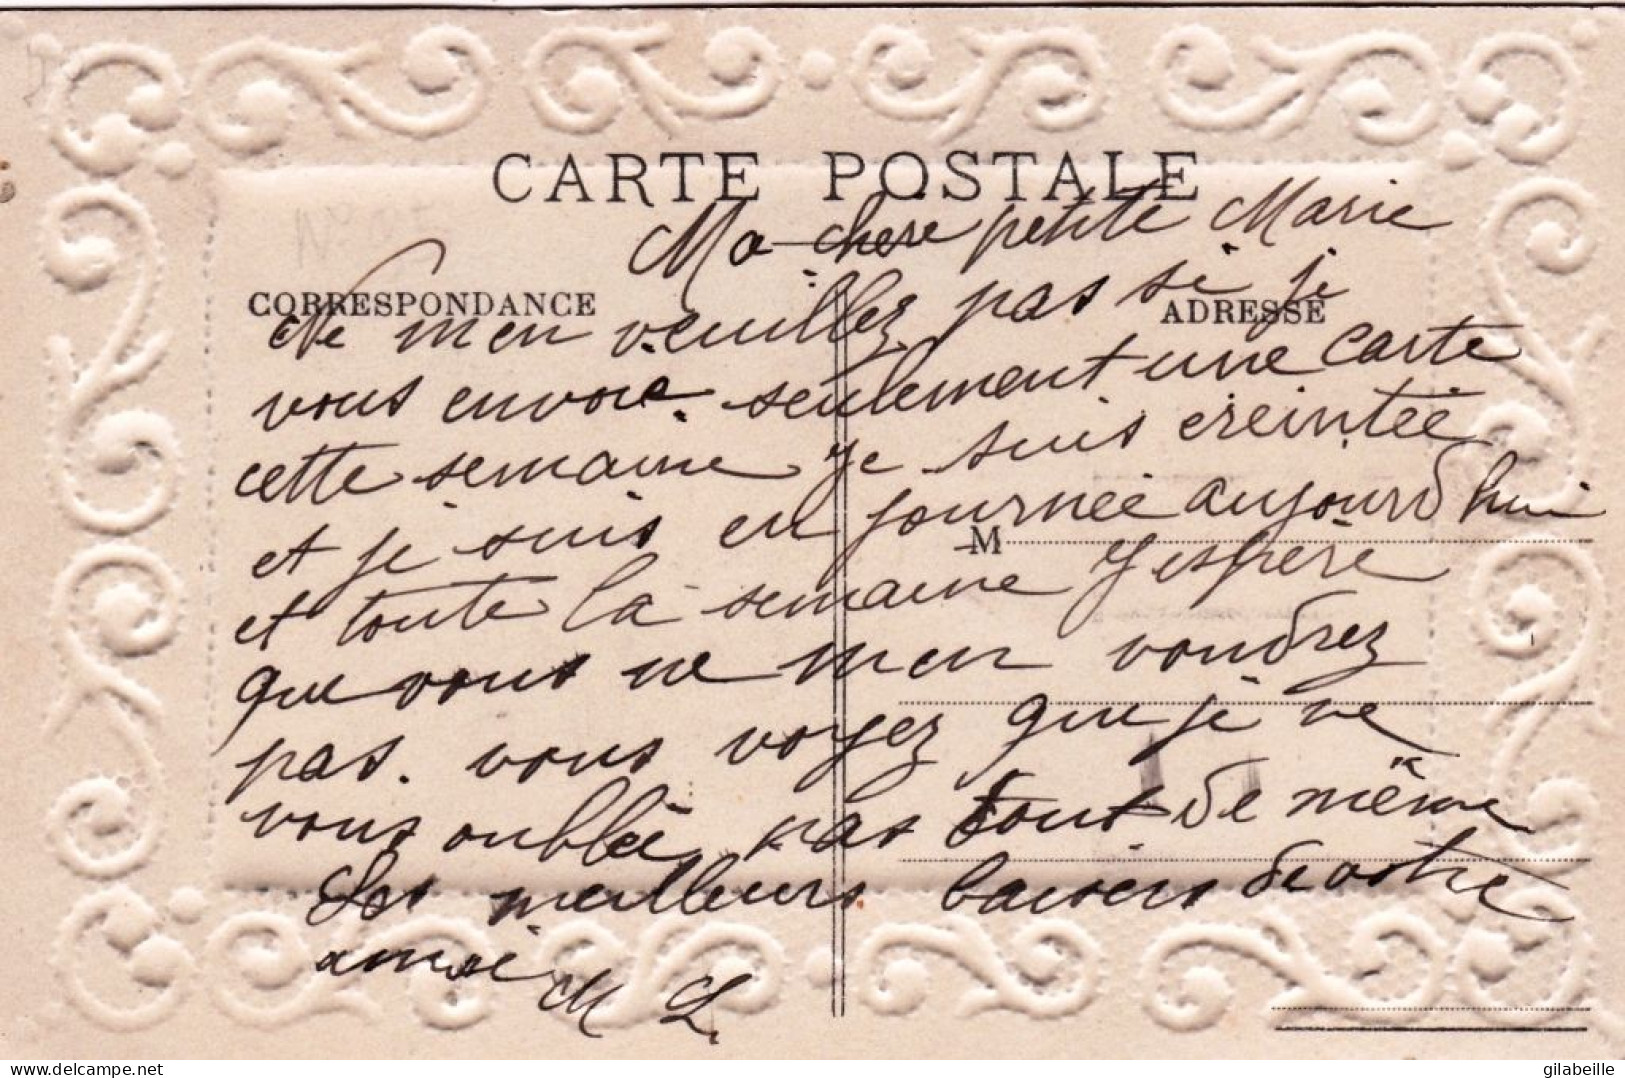 CARTE POSTALE
Ma chere petite Marie
CORRESPONDANCE
ADRESSE
Ne men veuillez pas si je
vous envoie seulement une carte
cette semaine je suis ereintée
et je suis en journée aujourd hui
M
et toute la semaine j espère
que vous ne men voudrez
pas. vous voyez que je ne
vous oublie pas tout de même
Les meilleurs baisers de votre
amie M L.
delcampe.net
gilabeille